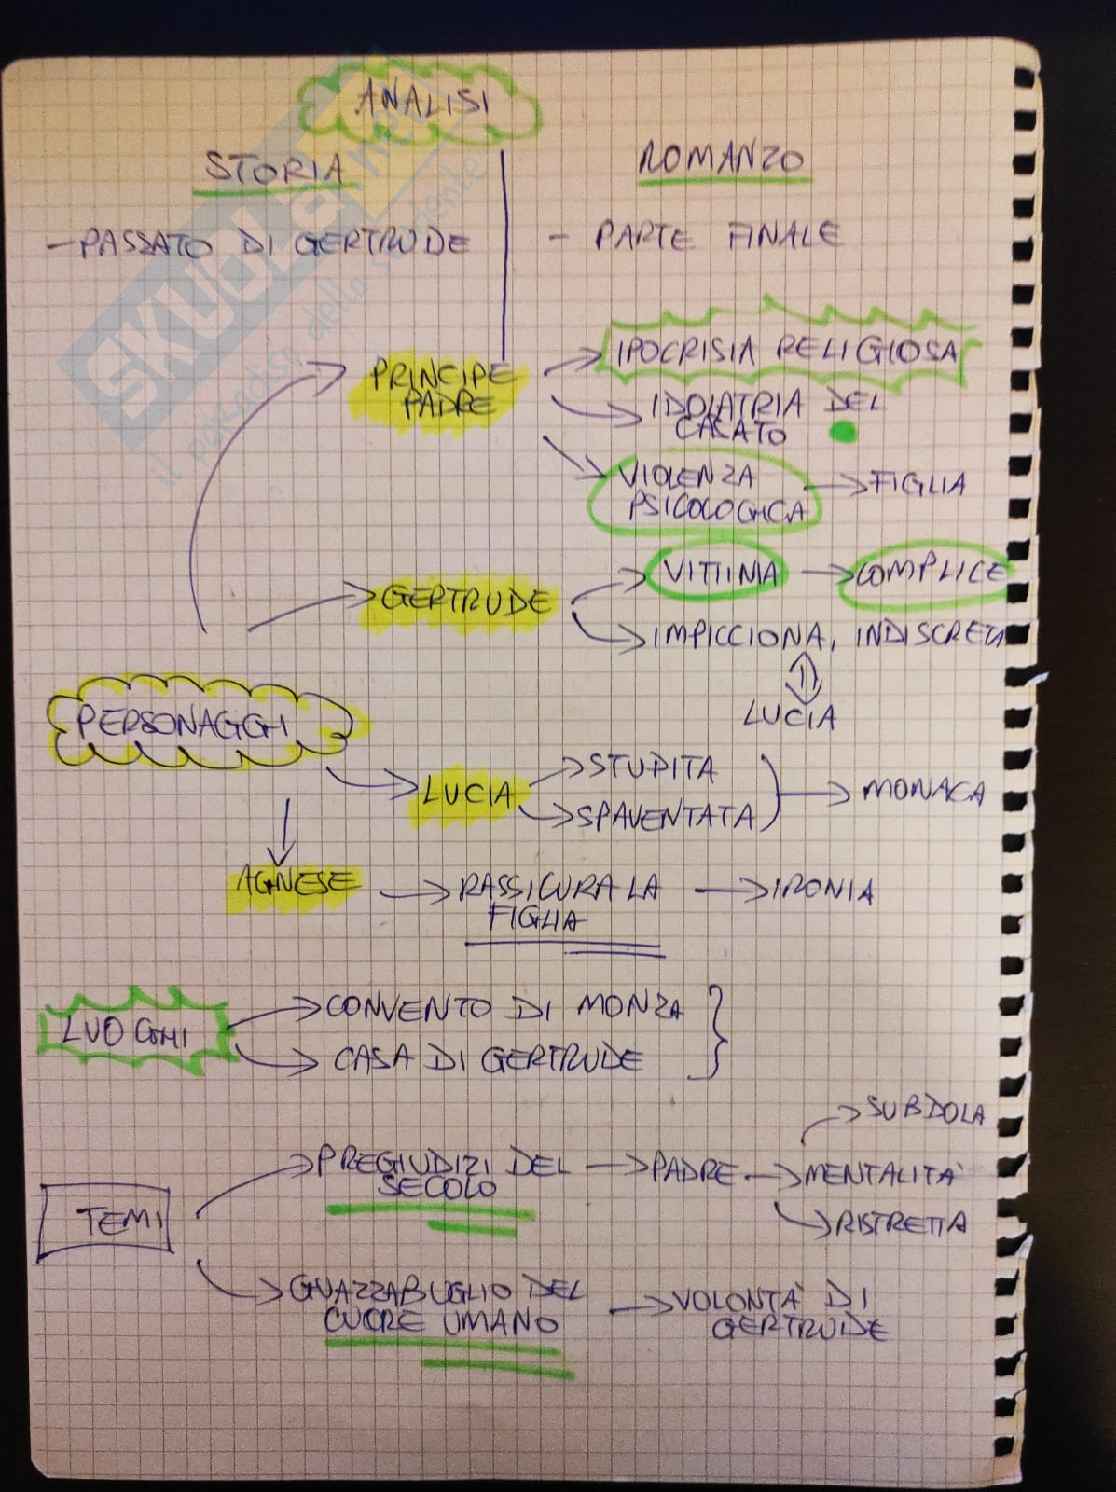 ANALISI
STORIA
ROMANZO
- PASSATO DI GERTRUDE
- PARTE FINALE
PRINCIPE
PADRE
IPOCRISIA RELIGIOSA
IDOLATRIA DEL
CASATO
VIOLENZA
PSICOLOGICA
FIGLIA
GERTRUDE
VITTIMA
COMPLICE
IMPICCIONA, INDISCRETA
LUCIA
PERSONAGGI
LUCIA
STUPITA
SPAVENTATA
MONACA
AGNESE
RASSICURA LA
FIGLIA
IRONIA
LUOGHI
CONVENTO DI MONZA
CASA DI GERTRUDE
TEMI
PREGIUDIZI DEL
SECOLO
PADRE
SUBDOLA
MENTALITÀ
RISTRETTA
GUAZZABUGLIO DEL
CUORE UMANO
VOLONTÀ DI
GERTRUDE
SKUOLA
il paradiso dello studente